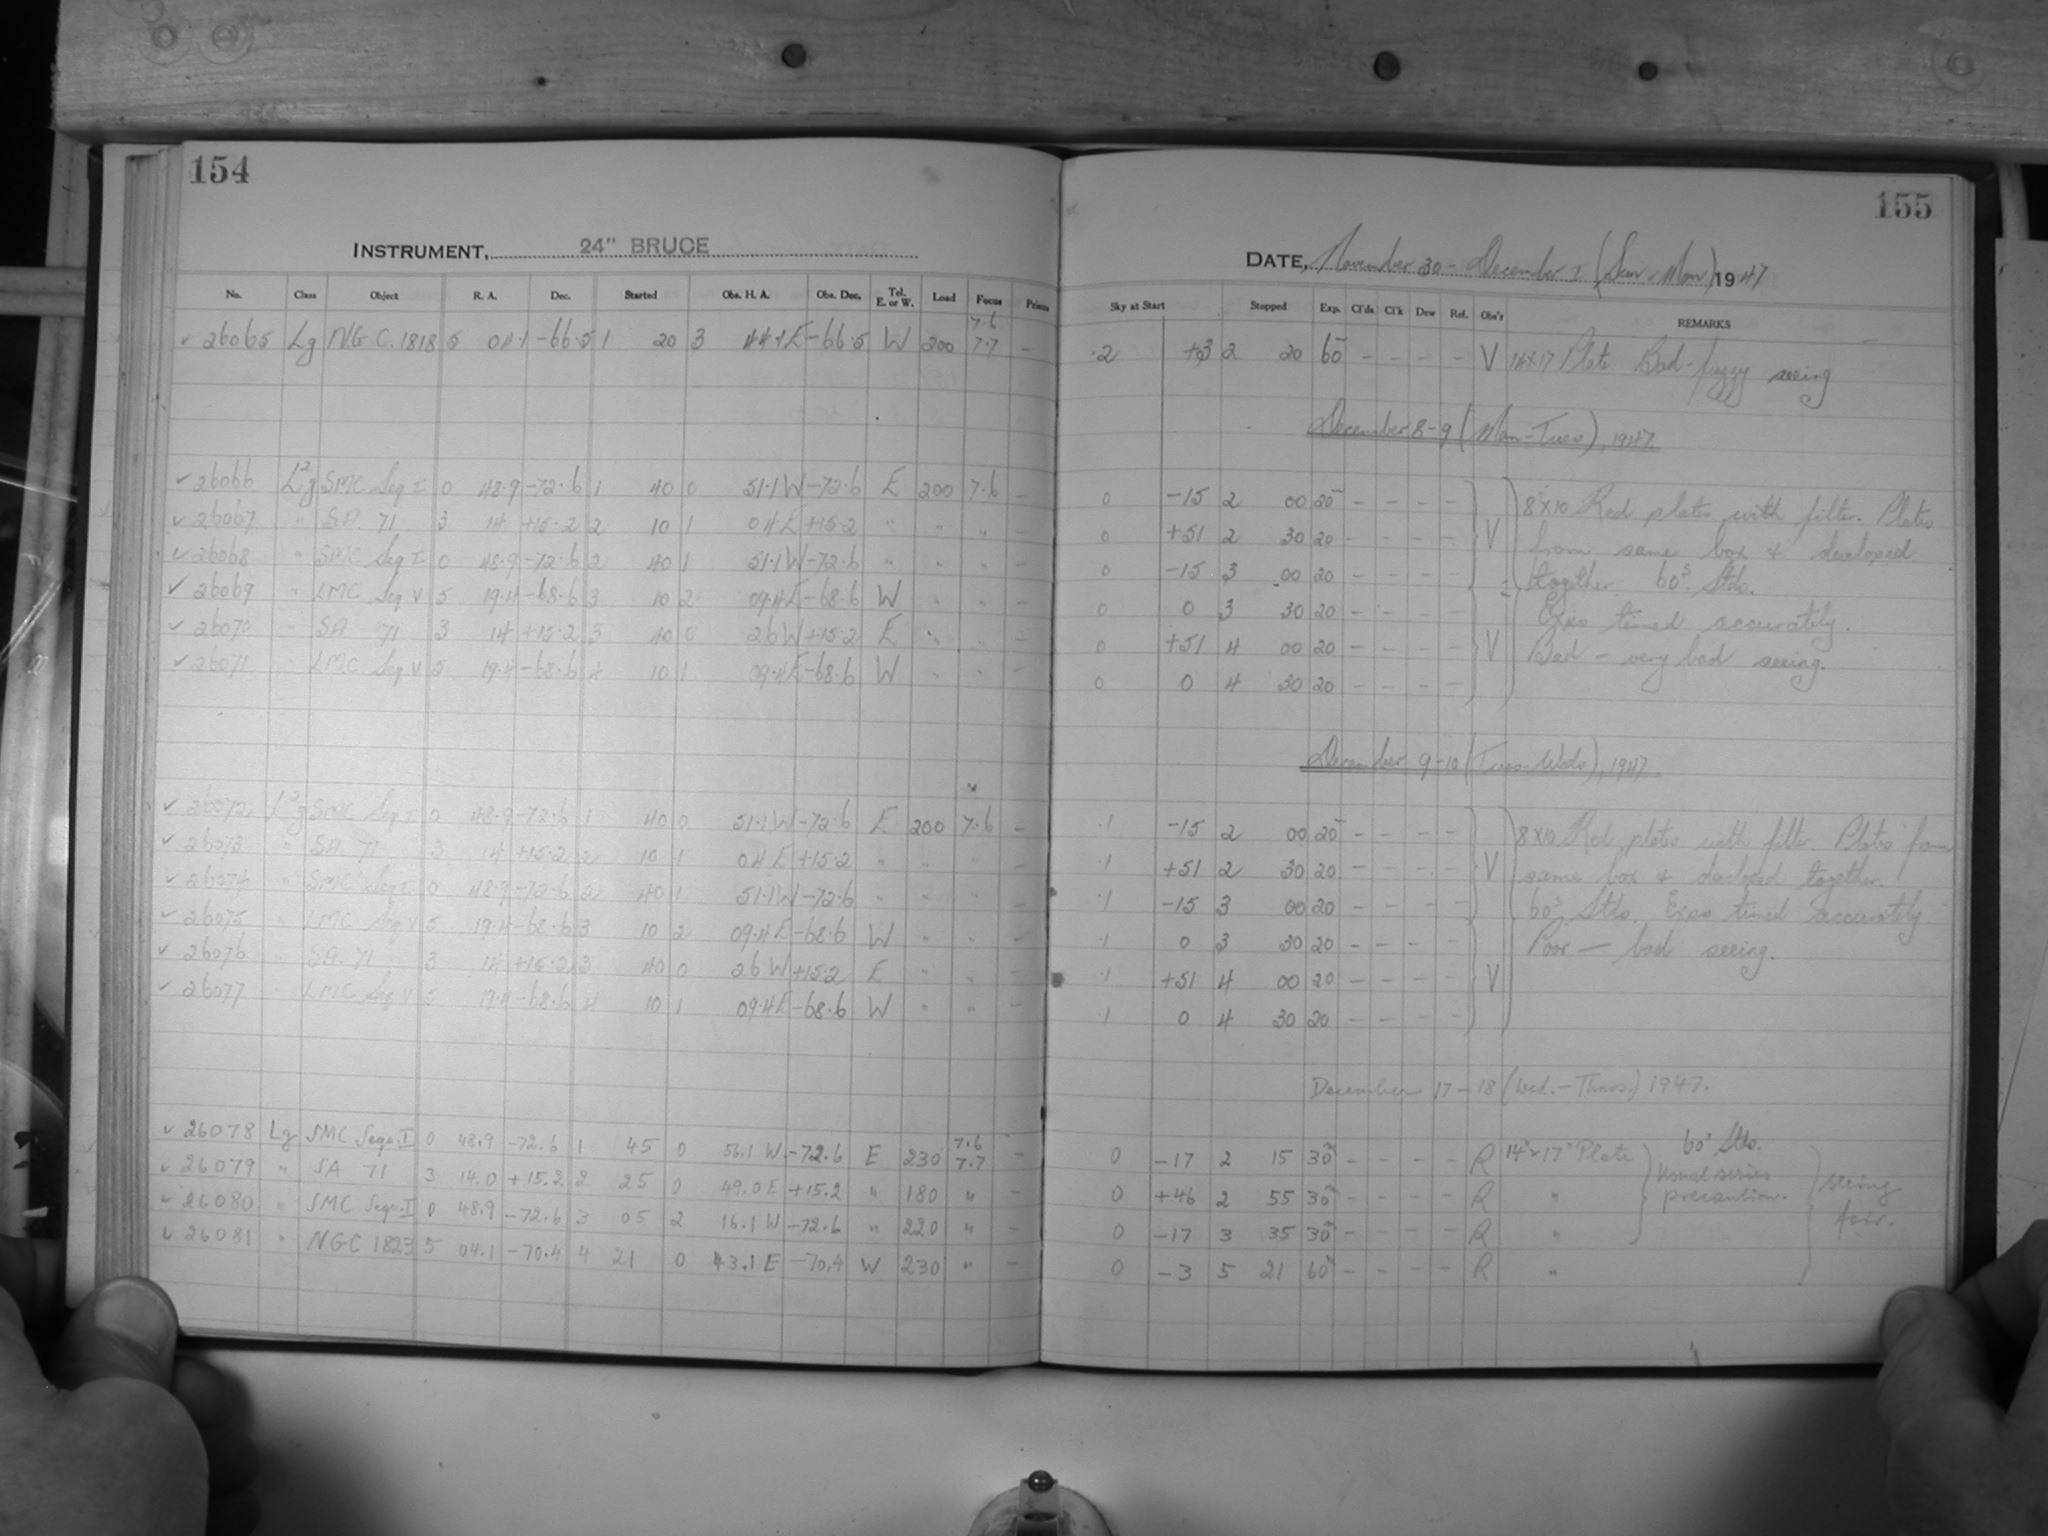 154
INSTRUMENT, 24" BRUCE
No. Class Object R. A. Dec. Started Obs. H. A. Obs. Dec. Tel. E. or W. Load Focus Prisms
✓ 26065 Lg NGC.1818 5 04.1 -66.5 1 20 3 44.1E -66.5 W 200 7.6 7.7 -
✓ 26066 L²g SMC Seq I 0 48.9 -72.6 1 40 0 51.1W -72.6 E 200 7.6 -
✓ 26067 " SA 71 3 14 +15.2 2 10 1 04E +15.2 " " " -
✓ 26068 " SMC Seq I 0 48.9 -72.6 2 40 1 51.1W -72.6 " " " -
✓ 26069 " LMC Seq V 5 19.4 -68.6 3 10 2 09.4E -68.6 W " " -
✓ 26070 " SA 71 3 14 +15.2 3 40 0 26W +15.2 E " " -
✓ 26071 " LMC Seq V 5 19.4 -68.6 4 10 1 09.4E -68.6 W " " -
✓ 26072 L²g SMC Seq I 0 48.9 -72.6 1 40 0 51.1W -72.6 E 200 7.6 -
✓ 26073 " SA 71 3 14 +15.2 2 10 1 04E +15.2 " " " -
✓ 26074 " SMC Seq I 0 48.9 -72.6 2 40 1 51.1W -72.6 " " " -
✓ 26075 " LMC Seq V 5 19.4 -68.6 3 10 2 09.4E -68.6 W " " -
✓ 26076 " SA. 71 3 14 +15.2 3 40 0 26W +15.2 E " " -
✓ 26077 " LMC Seq V 5 19.4 -68.6 4 10 1 09.4E -68.6 W " " -
✓ 26078 Lg SMC Sequ.I 0 48.9 -72.6 1 45 0 56.1 W -72.6 E 230 7.6 7.7 -
✓ 26079 " SA 71 3 14.0 +15.2 2 25 0 49.0 E +15.2 " 180 " -
✓ 26080 " SMC Sequ.I 0 48.9 -72.6 3 05 2 16.1 W -72.6 " 220 " -
✓ 26081 " NGC 1823 5 04.1 -70.4 4 21 0 43.1 E -70.4 W 230 " -
155
DATE, November 30 - December 1 (Sun-Mon) 1947
Sky at Start Stopped Exp. Cl'ds Cl'k Dew Ref. Obs'r REMARKS
.2 +3 2 20 60 - - - - V 14x17 Plate Bad - fuzzy seeing
December 8-9 (Mon-Tues), 1947
0 -15 2 00 20 - - - - 8x10 Red plates with filter. Plates
0 +51 2 30 20 - - - - V from same box & developed
0 -15 3 00 20 - - - - together. 60ˢ Stds.
0 0 3 30 20 - - - - Exps timed accurately.
0 +51 4 00 20 - - - - V Bad - very bad seeing.
0 0 4 30 20 - - - -
December 9-10 (Tues-Weds), 1947
.1 -15 2 00 20 - - - - 8x10 Red plates with filter. Plates from
.1 +51 2 30 20 - - - - V same box & developed together.
.1 -15 3 00 20 - - - - 60ˢ Stds. Exps timed accurately.
.1 0 3 30 20 - - - - Poor - bad seeing.
.1 +51 4 00 20 - - - - V
.1 0 4 30 20 - - - -
December 17-18 (Wed.-Thurs.) 1947.
0 -17 2 15 30ᵐ - - - - R 14"x17" Plate 60ˢ Stds.
0 +46 2 55 30ᵐ - - - - R " Usual series precaution. seeing
0 -17 3 35 30ᵐ - - - - R " fair.
0 -3 5 21 60ᵐ - - - - R "